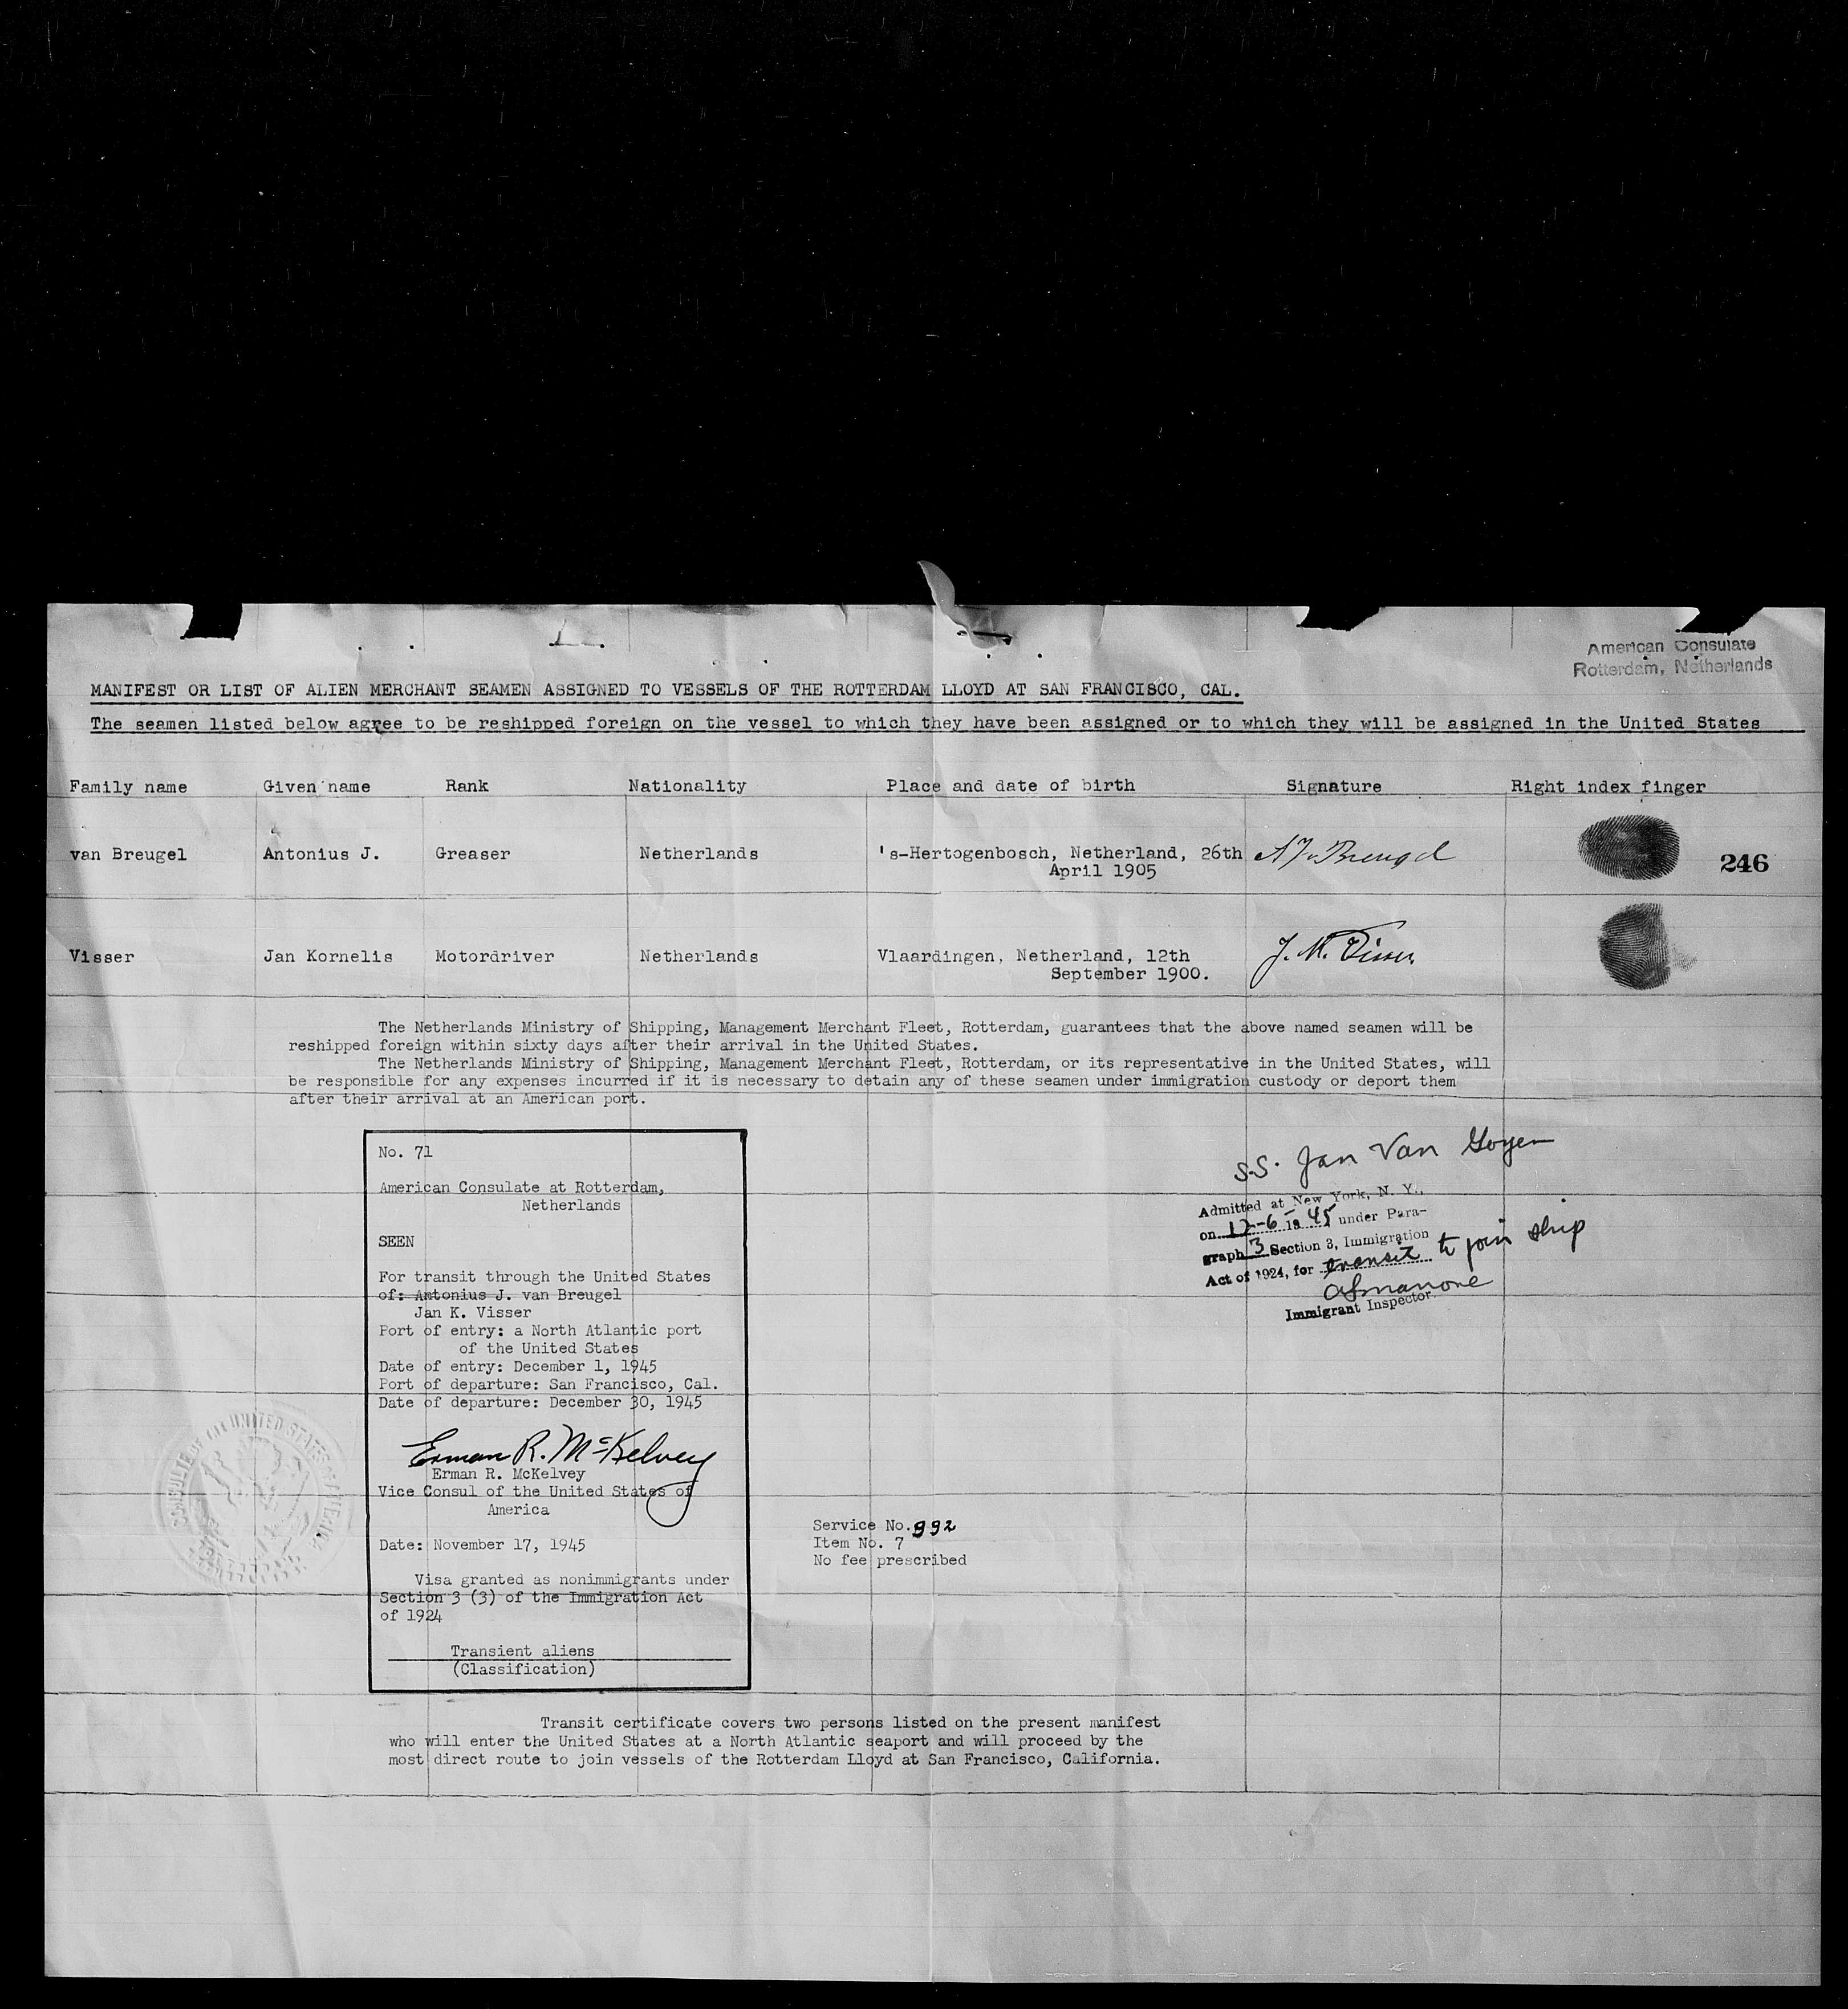 American Consulate
Rotterdam, Netherlands
MANIFEST OR LIST OF ALIEN MERCHANT SEAMEN ASSIGNED TO VESSELS OF THE ROTTERDAM LLOYD AT SAN FRANCISCO, CAL.
The seamen listed below agree to be reshipped foreign on the vessel to which they have been assigned or to which they will be assigned in the United States
Family name Given name Rank Nationality Place and date of birth Signature Right index finger
van Breugel Antonius J. Greaser Netherlands 's-Hertogenbosch, Netherland, 26th A J v Breugel 246
April 1905
Visser Jan Kornelis Motordriver Netherlands Vlaardingen, Netherland, 12th J. K. Visser
September 1900.
The Netherlands Ministry of Shipping, Management Merchant Fleet, Rotterdam, guarantees that the above named seamen will be
reshipped foreign within sixty days after their arrival in the United States.
The Netherlands Ministry of Shipping, Management Merchant Fleet, Rotterdam, or its representative in the United States, will
be responsible for any expenses incurred if it is necessary to detain any of these seamen under immigration custody or deport them
after their arrival at an American port.
No. 71
American Consulate at Rotterdam,
Netherlands
SEEN
For transit through the United States
of: Antonius J. van Breugel
Jan K. Visser
Port of entry: a North Atlantic port
of the United States
Date of entry: December 1, 1945
Port of departure: San Francisco, Cal.
Date of departure: December 30, 1945
Erman R. McKelvey
Erman R. McKelvey
Vice Consul of the United States of
America
Date: November 17, 1945
Visa granted as nonimmigrants under
Section 3 (3) of the Immigration Act
of 1924
Transient aliens
(Classification)
S.S. Jan Van Goyen
Admitted at New York, N. Y.,
on 12-6-1945 under Para-
graph 3 Section 3, Immigration
Act of 1924, for transit to join ship
Immigrant Inspector.
CONSULATE OF THE UNITED STATES OF AMERICA
Service No. 992
Item No. 7
No fee prescribed
Transit certificate covers two persons listed on the present manifest
who will enter the United States at a North Atlantic seaport and will proceed by the
most direct route to join vessels of the Rotterdam Lloyd at San Francisco, California.